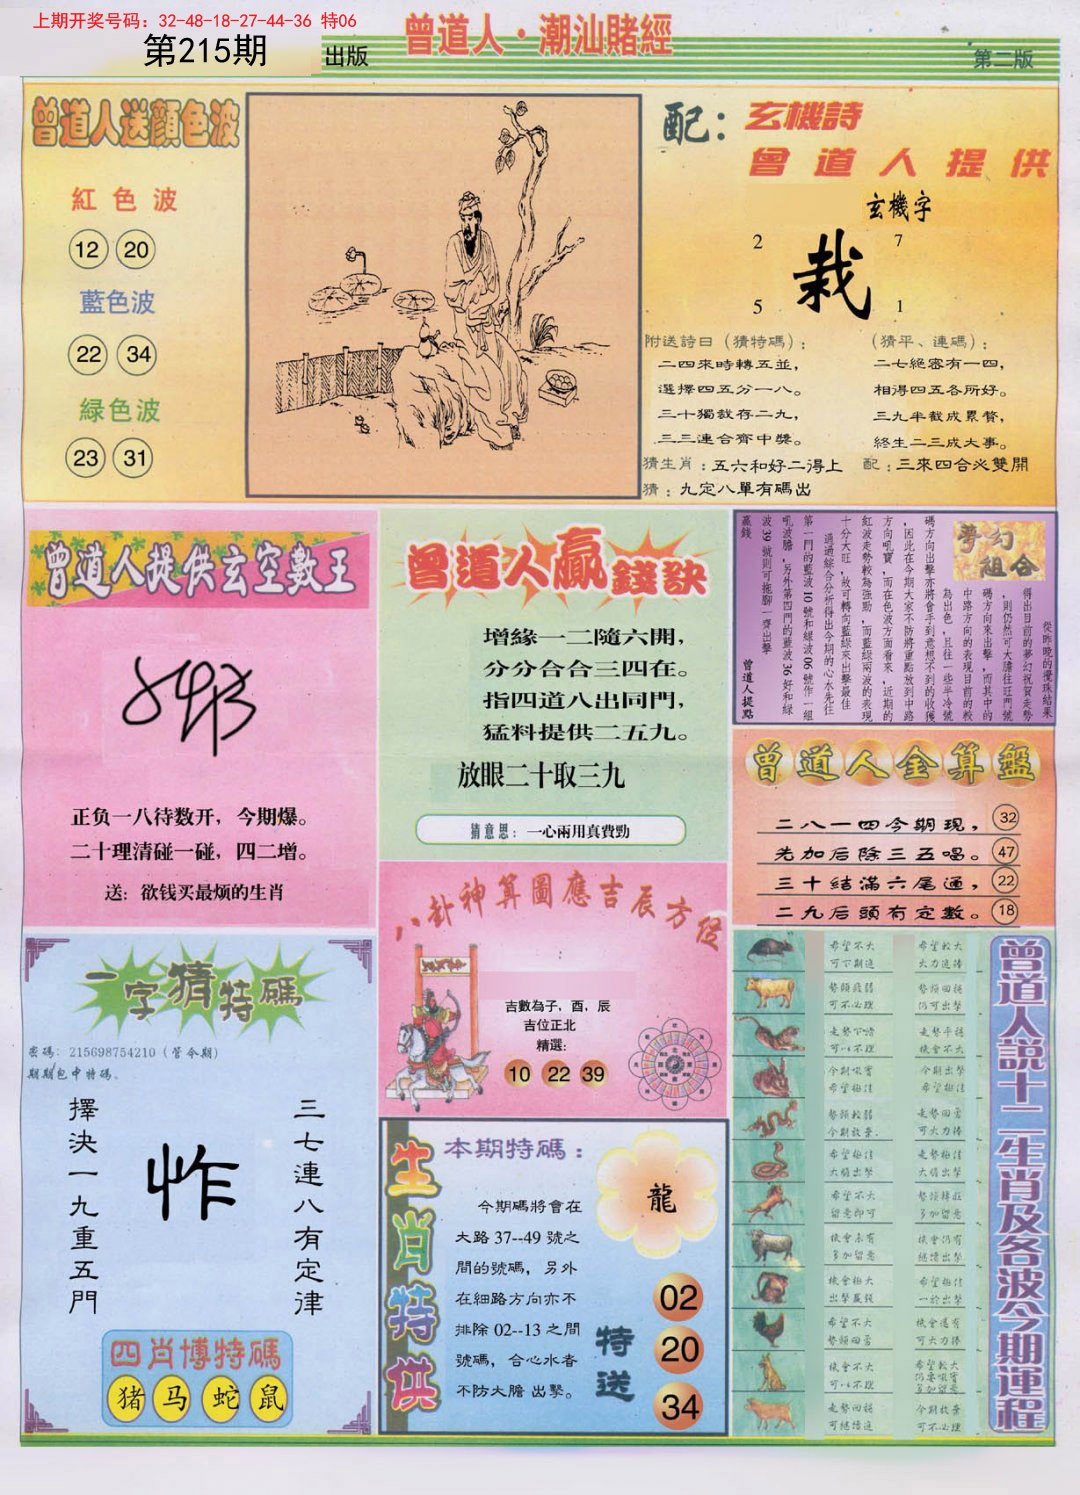 上期开奖号码：32-48-18-27-44-36 特06
第215期
出版
曾道人·潮汕賭經
第二版
曾道人送顏色波
紅色波
12 20
藍色波
22 34
緑色波
23 31
配：玄機詩
曾道人提供
玄機字
2 7
栽
5 1
附送詩曰（猜特碼）：
二四來時轉五並，
選擇四五分一八。
三十獨裁存二九，
三三連合齊中獎。
（猜平、連碼）：
二七絕密有一四，
相得四五各所好。
三九半截成累贅，
終生二三成大事。
猜生肖：五六和好二得上
配：三來四合必雙開
猜：九定八單有碼出
曾道人提供玄空數王
正负一八待数开，今期爆。
二十理清碰一碰，四二增。
送：欲钱买最烦的生肖
曾道人贏錢訣
增緣一二隨六開，
分分合合三四在。
指四道八出同門，
猛料提供二五九。
放眼二十取三九
猜意思：一心兩用真費勁
夢幻組合
從昨晚的攪珠結果
得出目前的夢幻祝賀走勢
，則仍然可大膽往旺門號
碼方向來出擊，而其中的
中路方向的表現目前的較
為出色，且往一些半冷號
碼方向出擊亦將會手到意想不到的收獲
，因此在今期大家不防將重點放到中路
方向吼寶，而在色波方面看來，近期的
紅波走勢較為強勁，而藍綠兩波的表現
十分大旺，故可轉向藍綠來出擊最佳
通過綜合分析得出今期的心水先往
第一門的藍波10號和綠波06號作一組
吼波膽，另外第四門的藍波36好和綠
波39號則可拖腳一齊出擊
贏錢
曾道人提點
曾道人金算盤
二八一四今期現， 32
先加后除三五唱。 47
三十結滿六尾通， 22
二九后頭有定數。 18
八卦神算圖應吉辰方位
吉數為子，酉，辰
吉位正北
精選：
10 22 39
一字猜特碼
密碼：215698754210（管今期）
期期包中特碼。
擇決一九重五門
三七連八有定律
四肖博特碼
猪 马 蛇 鼠
生肖特供
本期特碼：
龍
今期碼將會在
大路37--49號之
間的號碼，另外
在細路方向亦不
排除02--13之間
號碼，合心水者
不防大膽出擊。
特送
02
20
34
曾道人說十二生肖及各波今期運程